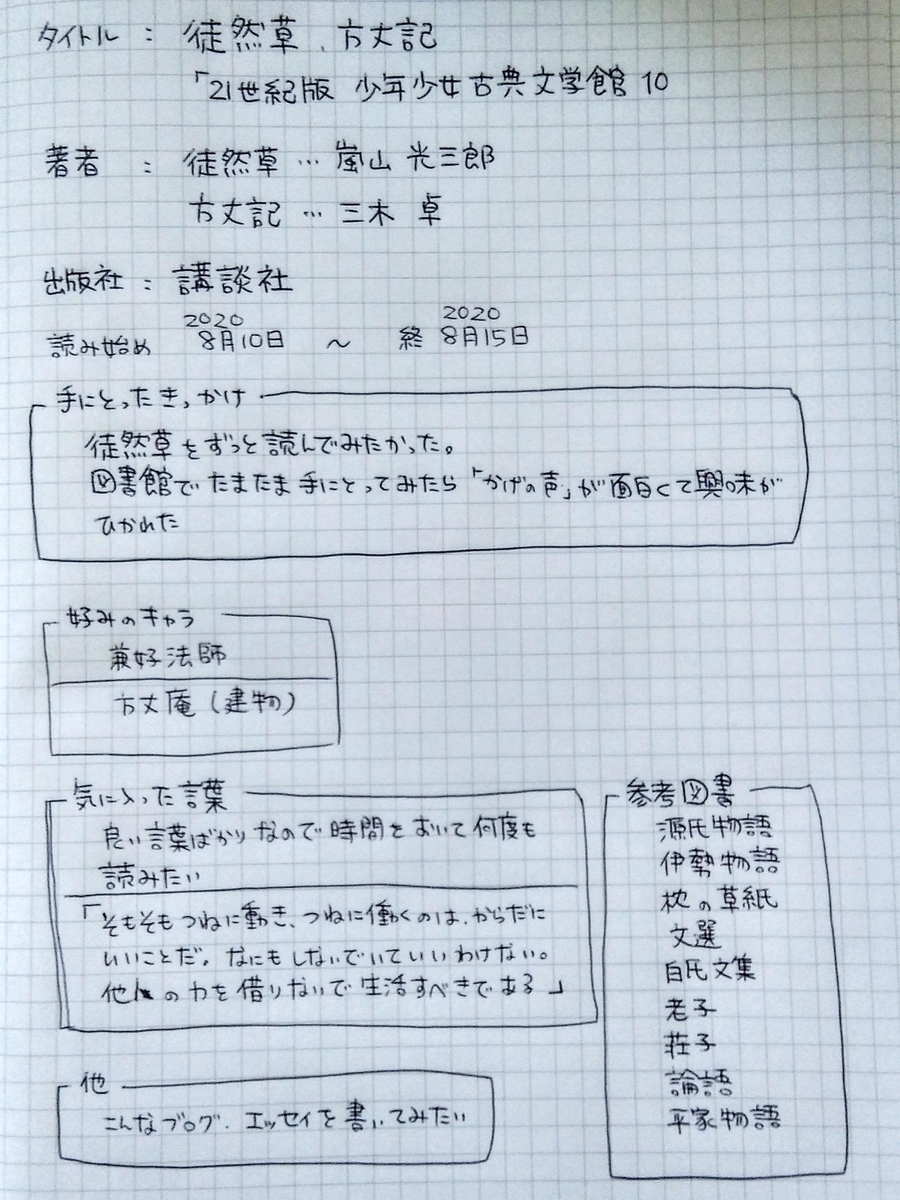 タイトル : 徒然草、方丈記
「21世紀版 少年少女古典文学館 10
著者 : 徒然草 … 嵐山 光三郎
方丈記 … 三木 卓
出版社 : 講談社
読み始め 2020 8月10日 ~ 終 2020 8月15日
手にとったきっかけ
徒然草をずっと読んでみたかった。
図書館でたまたま手にとってみたら「かげの声」が面白くて興味が
ひかれた
好みのキャラ
兼好法師
方丈庵(建物)
気に入った言葉
良い言葉ばかりなので時間をおいて何度も
読みたい
「そもそもつねに動き、つねに働くのは、からだに
いいことだ。なにもしないでいていいわけない。
他人の力を借りないで生活すべきである」
参考図書
源氏物語
伊勢物語
枕の草紙
文選
白氏文集
老子
荘子
論語
平家物語
他
こんなブログ、エッセイを書いてみたい